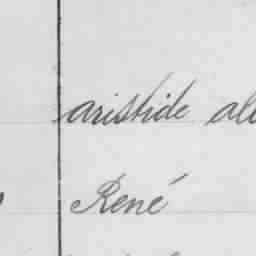 aristide
René